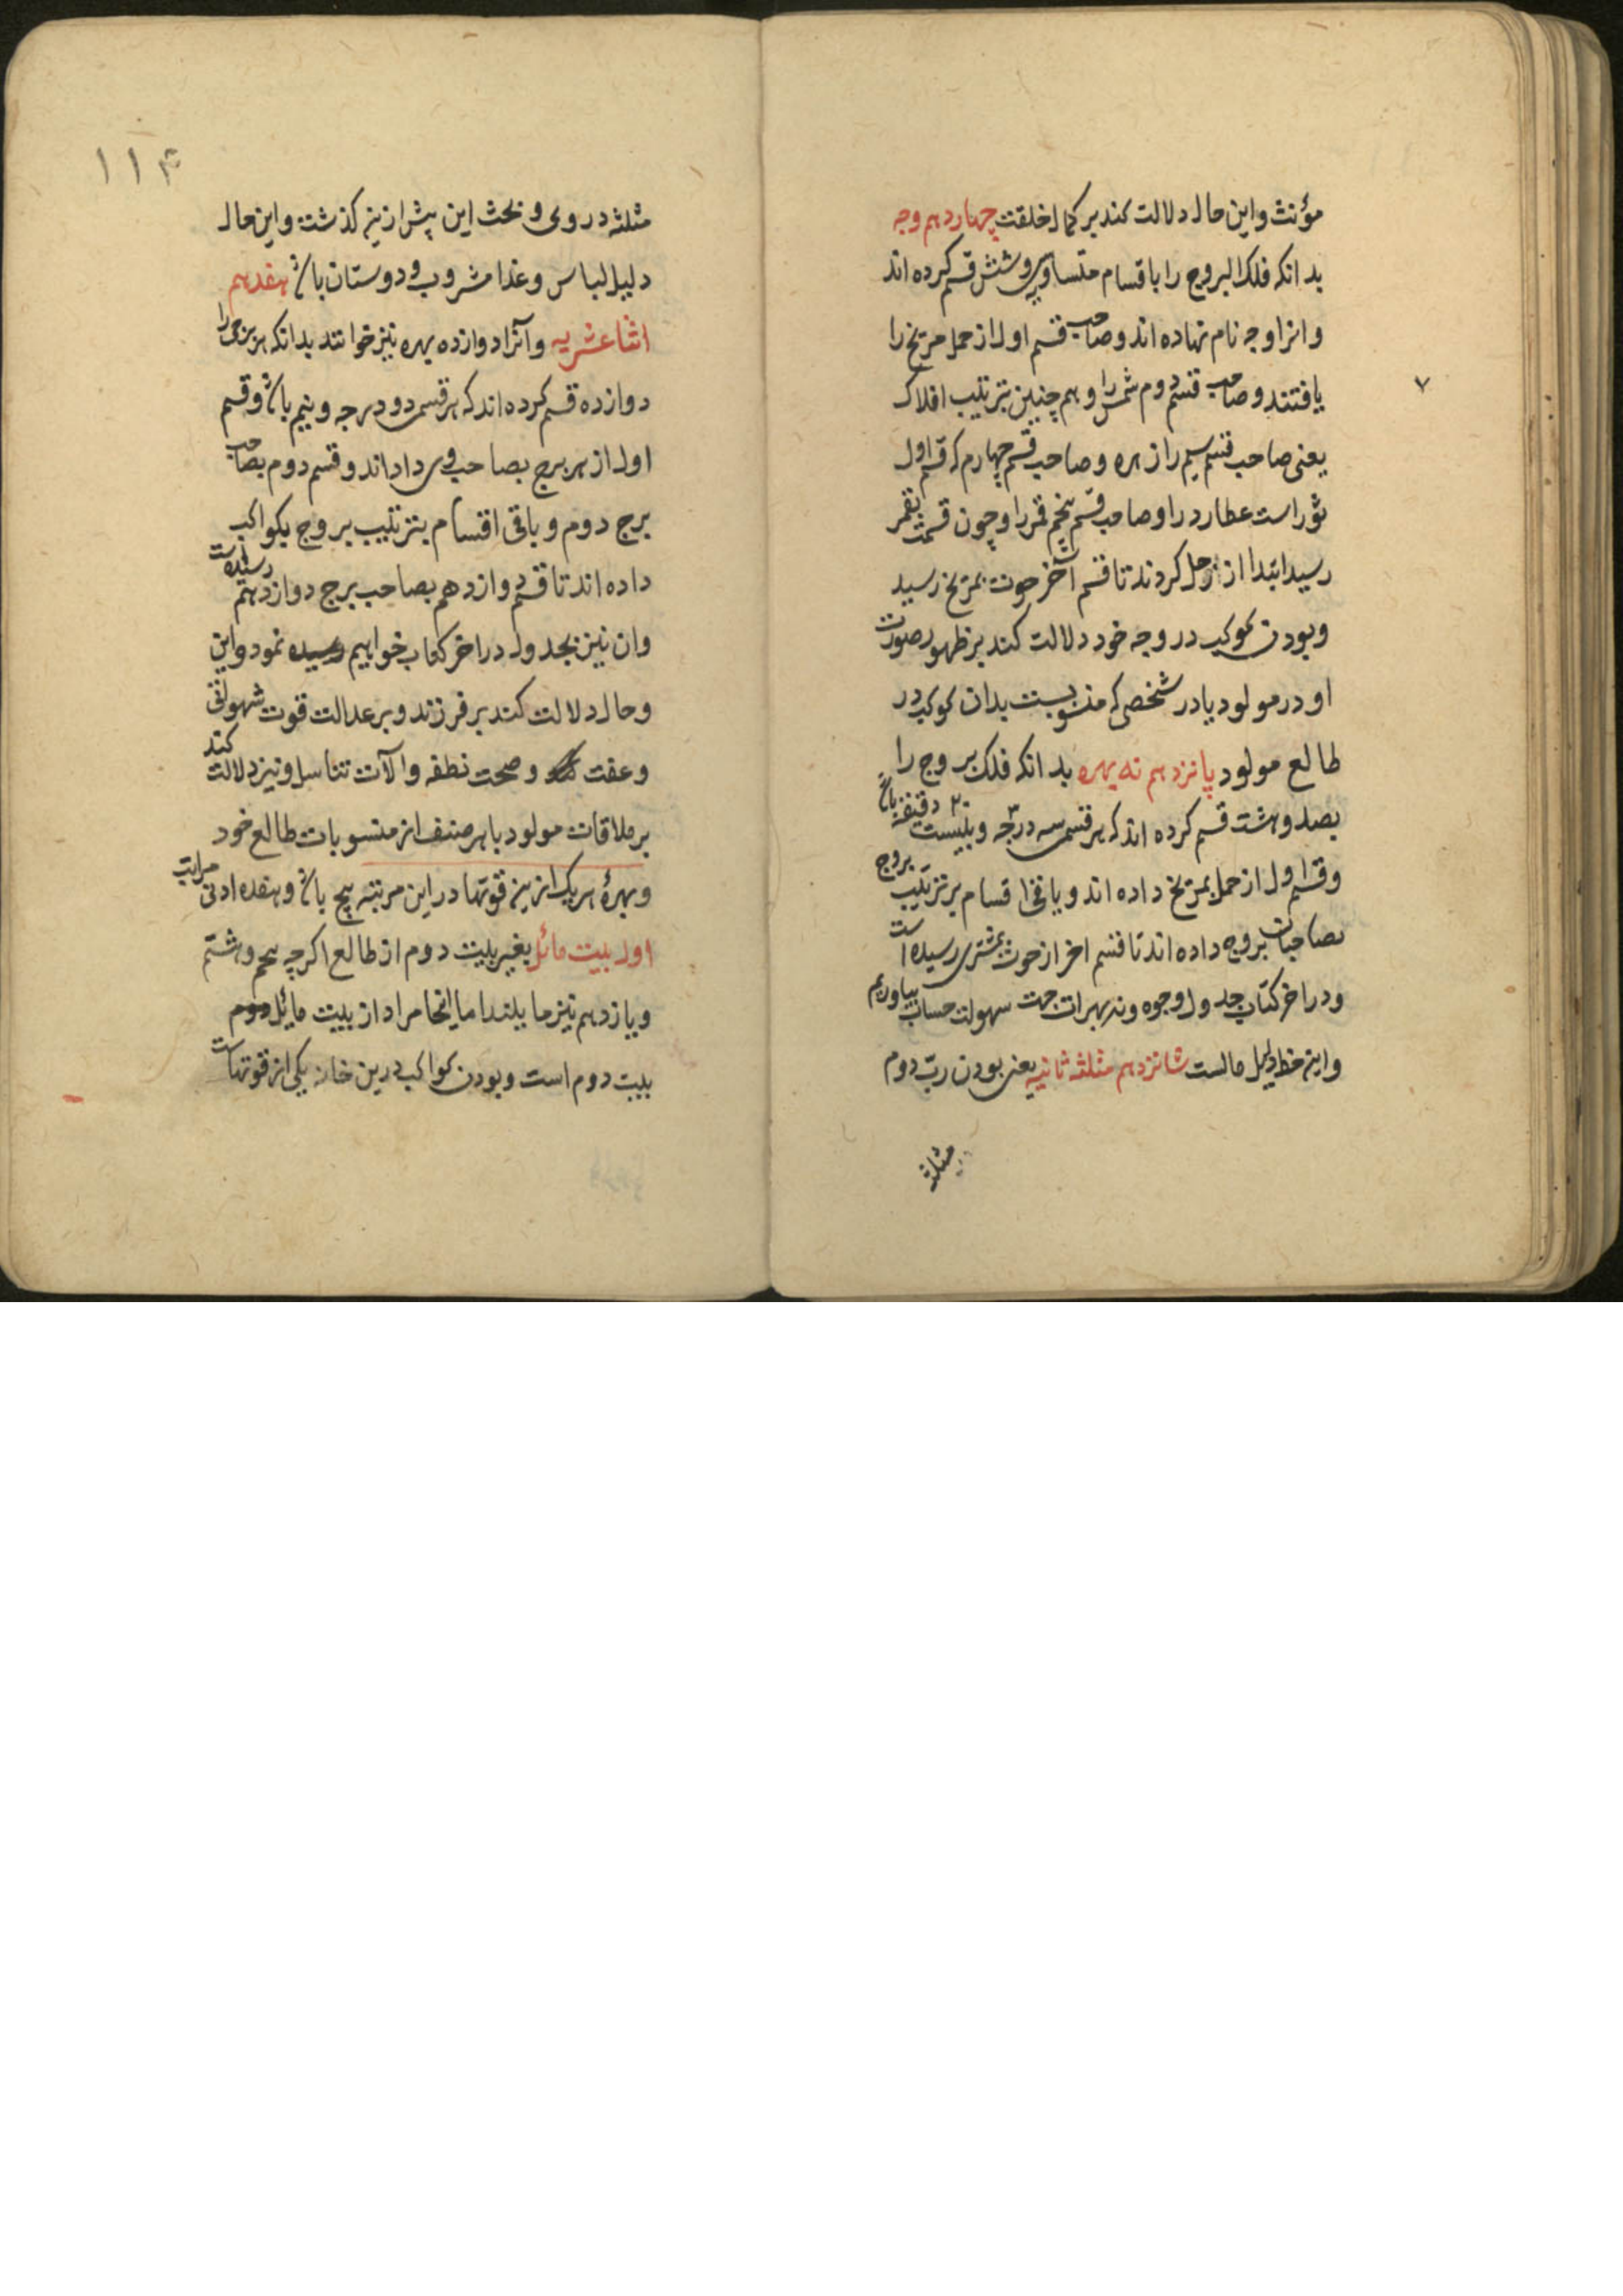 مؤنث و این حال دلالت کند بر کمال خلقت چهاردهم وجه
بدانکه فلک البروج را باقسام متساوی سی و شش قسم کرده اند
و انرا وجه نام نهاده اند و صاحب قسم اول از حمل مریخ را
یافتند و صاحب قسم دوم شمس را و هم چنین بترتیب افلاک
۷
یعنی صاحب قسم سیم را زهره و صاحب قسم چهارم که قسم اول
ثور است عطارد را و صاحب قسم پنجم قمر را و چون قسمت بقمر
رسید ابتدا از زحل کردند تا قسم آخر حوت بمریخ رسید
و بودن کوکب در وجه خود دلالت کند بر ظهور صورت
او در مولود یا در شخصی که منسوبست بدان کوکب در
طالع مولود پانزدهم نه بهره بدانکه فلک بروج را
بصد و هشت قسم کرده اند که هر قسمی سه درجه و بیست ۲۰ دقیقه باشد
و قسم اول از حمل بمریخ داده اند و باقی اقسام بر ترتیب بروج
بصاحبان بروج داده اند تا قسم اخر از حوت بمشتری رسیده است
و در اخر کتاب جدول وجوه و نه بهرات جهت سهولت حساب بیاوریم
و این خط دلیل مالست شانزدهم مثلثه ثانیه یعنی بودن رب دوم
مثلثه
۱۱۴
مثلثه در وی و بحث این پیش ازین گذشت و این حال
دلیل لباس و غذا مشروب و دوستان باشد هفدهم
اثنا عشریه و آنرا دوازده بهره نیز خوانند بدانکه هر برجی را
دوازده قسم کرده اند که هر قسمی دو درجه و نیم باشد و قسم
اول از هر برج بصاحب وی داداند و قسم دوم بصاحب
برج دوم و باقی اقسام بترتیب بروج بکواکب
داده اند تا قسم دوازدهم بصاحب برج دوازدهم رسیده است
وان نیز بجدول در اخر کتاب خواهیم نمود و این
و حال دلالت کند بر فرزند و بر عدالت قوت شهوانی
و عفت و صحت نطفه و آلات تناسل و نیز دلالت کند
بر ملاقات مولود با هر صنف از منسوبات طالع خود
و بهرهٔ هر یک ازین قوتها در این مرتبه پنج باشد و هفده ادنی مراتب
اول بیت مائل بغیر بیت دوم از طالع اگر چه پنجم و هشتم
و یازدهم نیز مایلند اما اینجا مراد از بیت مایل دوم
بیت دوم است و بودن کواکب درین خانه یکی از قوتهاست